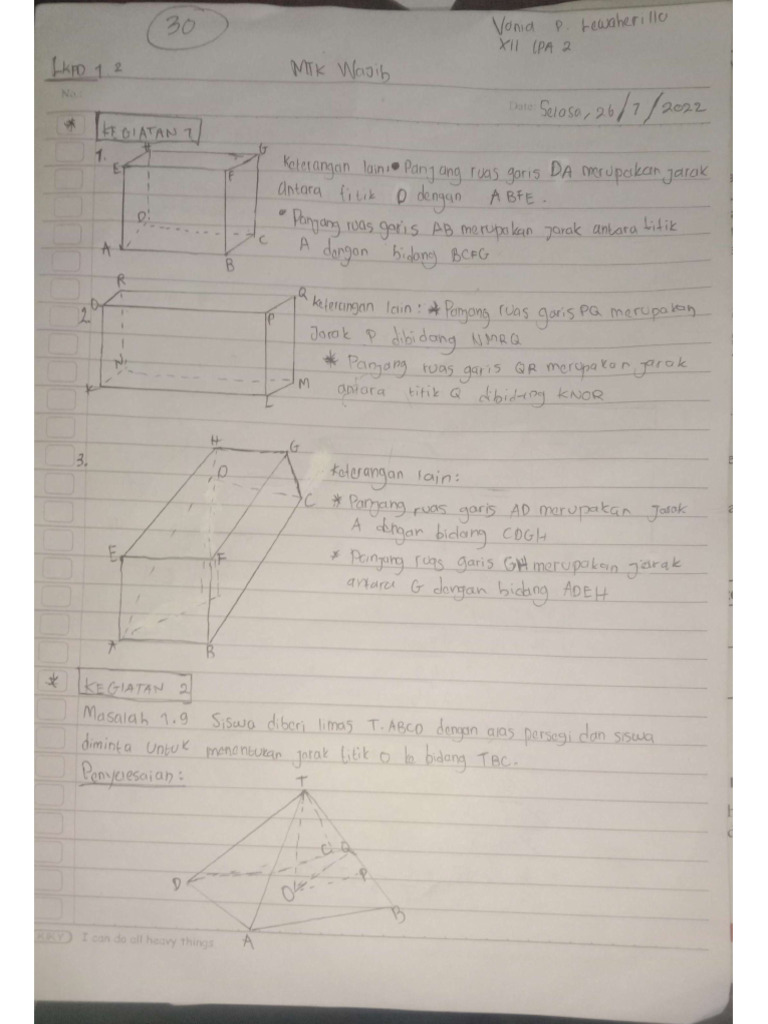 30
Vonia P. Lewaherillo
XII IPA 2
LKPD 1.2
MTK Wajib
No.:
Date: Selasa, 26/7/2022
* KEGIATAN 1
1.
H G
E F
D C
A B
Keterangan lain: • Panjang ruas garis DA merupakan jarak
antara titik D dengan ABFE.
• Panjang ruas garis AB merupakan jarak antara titik
A dengan bidang BCFG
2.
R Q
O P
N M
K L
Keterangan lain: * Panjang ruas garis PQ merupakan
Jarak P dibidang NMRQ
* Panjang ruas garis QR merupakan jarak
antara titik Q dibidang KNOR
3.
H G
D C
E F
A B
Keterangan lain:
* Panjang ruas garis AD merupakan jarak
A dengan bidang CDGH
* Panjang ruas garis GH merupakan jarak
antara G dengan bidang ADEH
* KEGIATAN 2
Masalah 1.9 Siswa diberi limas T.ABCD dengan alas persegi dan siswa
diminta untuk menentukan jarak titik O ke bidang TBC.
Penyelesaian:
T
C Q
D O P
B
A
I can do all heavy things